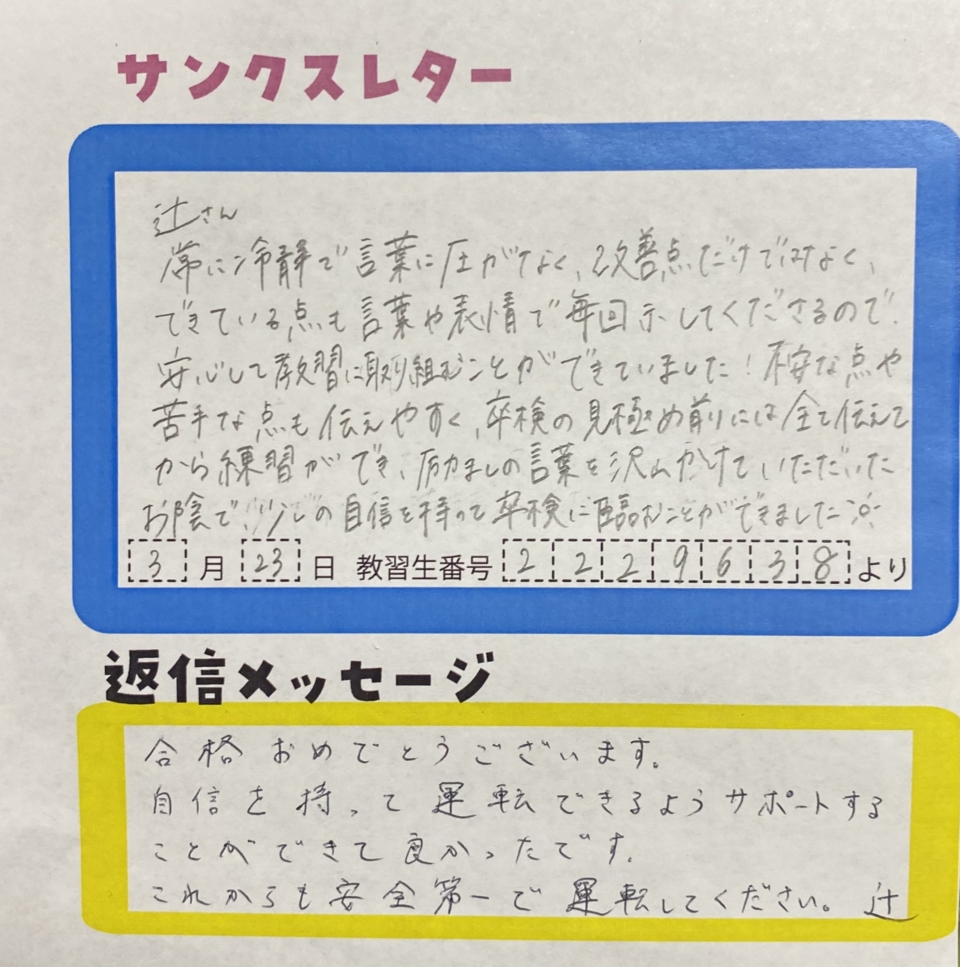 サンクスレター
辻さん
常に冷静で言葉に圧がなく、改善点だけではなく、
できている点も言葉や表情で毎回示してくださるので、
安心して教習に取り組むことができていました！不安な点や
苦手な点も伝えやすく、卒検の見極め前には全て伝えて
から練習ができ、励ましの言葉を沢山かけていただいた
お陰で、少しの自信を持って卒検に臨むことができました
3月23日 教習生番号 2229638より
返信メッセージ
合格おめでとうございます。
自信を持って運転できるようサポートする
ことができて良かったです。
これからも安全第一で運転してください。 辻